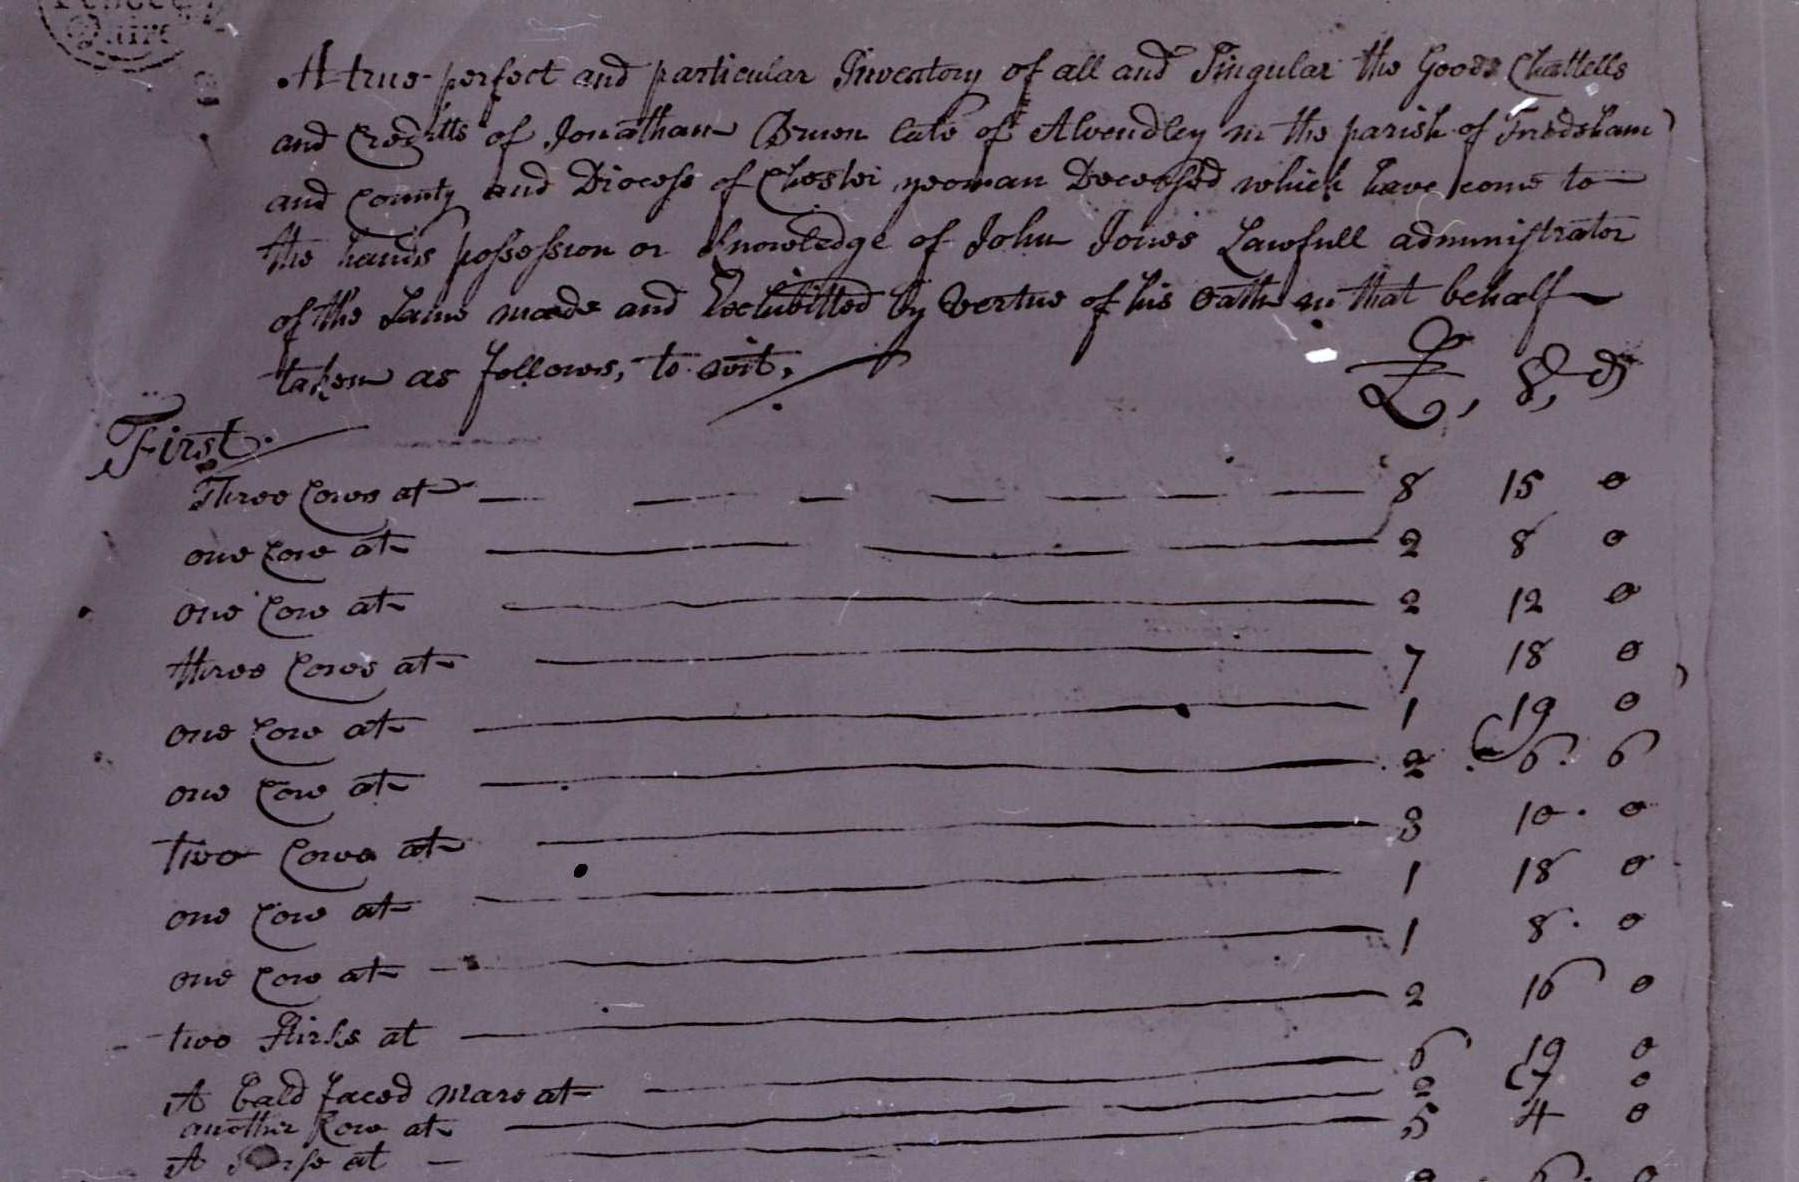 A true perfect and particular Inventory of all and Singular the Goods Chattells
and Creditts of Jonathan Bruen late of Alvendley in the parish of Frodsham
and County and Diocess of Chester yeoman Deceased which have come to
the hands possession or knowledge of John Jones Lawfull administrator
of the Same made and Exhibitted by vertue of his oath in that behalf
taken as follows, to wit,
£, S, D
First
Three Cows at 8 15 0
one Cow at 2 8 0
one Cow at 2 12 0
three Cows at 7 18 0
one Cow at 1 19 0
one Cow at 2 6 6
two Cows at 3 10 0
one Cow at 1 18 0
one Cow at 1 8 0
two Stirks at 2 16 0
A bald faced mare at 6 19 0
another Cow at 2 7 0
A Horse at 5 4 0